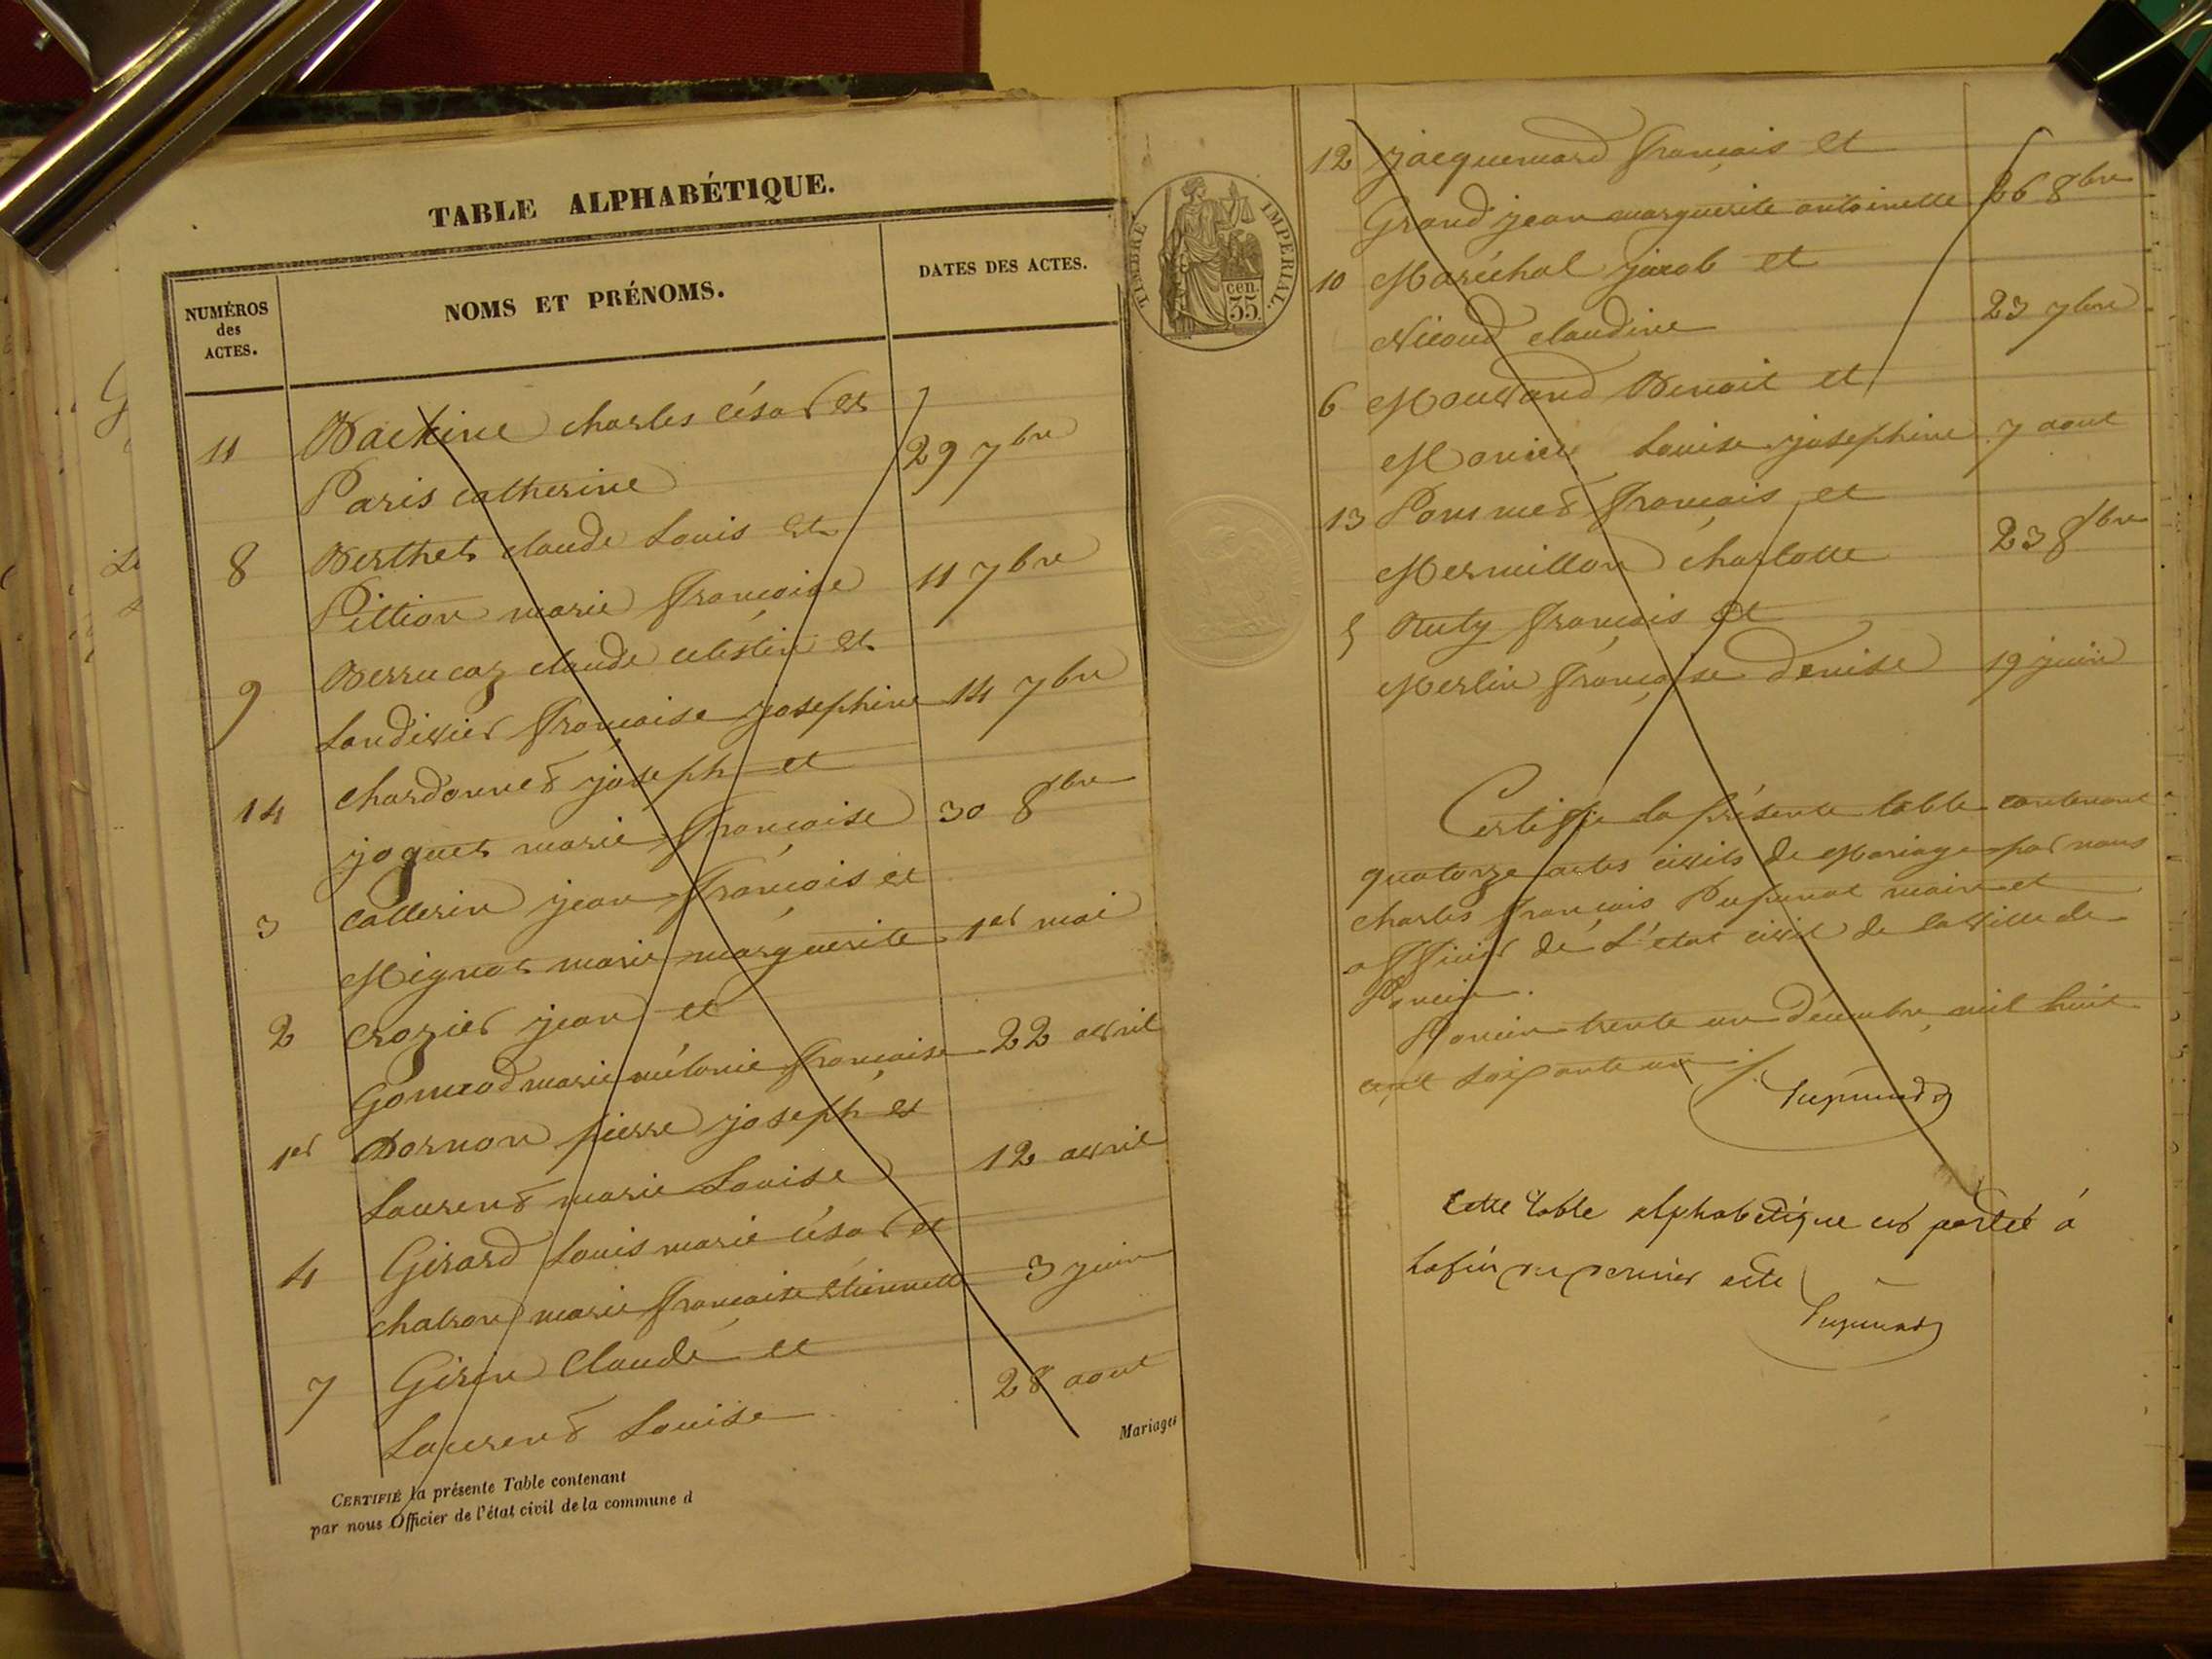 TABLE ALPHABÉTIQUE.
NUMÉROS
des
ACTES.
NOMS ET PRÉNOMS.
DATES DES ACTES.
11 Backine charles César et
Paris catherine 29 7bre
8 Berthet claude Louis et
Pittion marie françoise 11 7bre
9 Berrucaz claude celestin et
Landivier françoise josephine 14 7bre
14 chardonnet joseph et
joguet marie françoise 30 8bre
3 collerin jean françois et
Mignot marie marguerite 1er mai
2 Crozier jean et
marie mélanie françoise 22 avril
1er Dornon pierre joseph et
Laurent marie Louise 12 avril
4 Girard Louis marie César et
chatron marie françoise Etiennette 3 juin
7 Girin Claude et
Laurent Louise 28 aout
Mariages
CERTIFIÉ la présente Table contenant
par nous Officier de l'état civil de la commune d
TIMBRE IMPERIAL.
35 cen.
12 jacquemard françois et
Grandjean marguerite antoinette 26 8bre
10 Maréchal jacob et
Nicoud claudine 23 7bre
6 Benoit et
Louise josephine 7 aout
13 Pommet françois et
Mermillon charlotte 23 8bre
5 Ruty françois et
Merlin françoise Denise 19 juin
Certifié la présente table contenant
quatorze actes civils de Mariage par nous
charles françois Pupunat maire et
officier de L'état civil de la ville de
Poncin.
Poncin trente un décembre mil huit
cent soixante un ./.
Pupunat
Cette table alphabétique est portée à
la fin du dernier acte
Pupunat